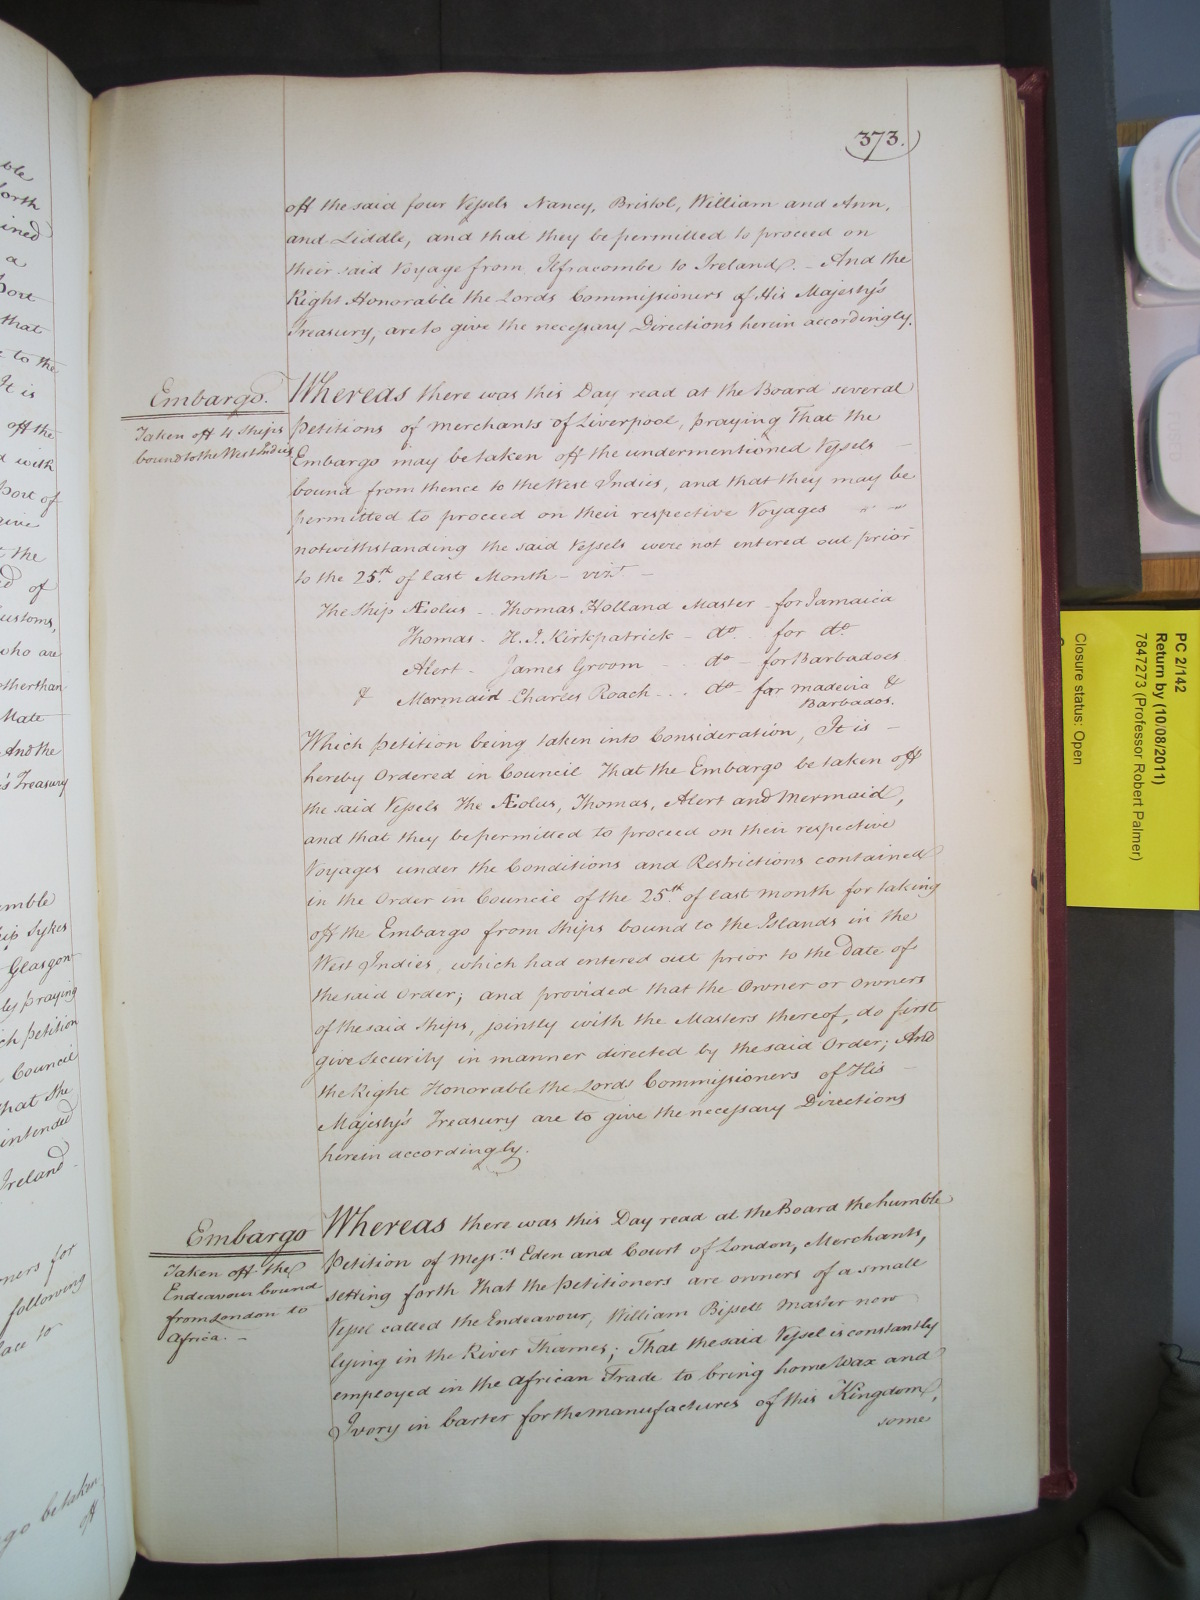 373.
off the said four Vessels Nancy, Bristol, William and Ann,
and Liddle, and that they be permitted to proceed on
their said Voyage from Ilfracombe to Ireland. - And the
Right Honorable the Lords Commissioners of His Majesty's
Treasury, are to give the necessary Directions herein accordingly.
Embargo.
Taken off 4 Ships
bound to the West Indies
Whereas there was this Day read at the Board several
Petitions of Merchants of Liverpool, praying That the
Embargo may be taken off the undermentioned Vessels
bound from thence to the West Indies, and that they may be
permitted to proceed on their respective Voyages
notwithstanding the said Vessels were not entered out prior
to the 25th of last Month - vizt -
The Ship Æolus - Thomas Holland Master - for Jamaica
Thomas - H. J. Kirkpatrick - do for do
Alert - James Groom - do - for Barbadoes
& Mermaid Charles Roach ... do - for Madeira &
Barbados.
Which Petition being taken into Consideration, It is -
hereby Ordered in Council That the Embargo be taken off
the said Vessels The Æolus, Thomas, Alert and Mermaid,
and that they be permitted to proceed on their respective
Voyages under the Conditions and Restrictions contained
in the Order in Council of the 25th of last month for taking
off the Embargo from Ships bound to the Islands in the
West Indies, which had entered out prior to the Date of
the said Order; and provided that the Owner or Owners
of the said Ships, jointly with the Masters thereof, do first
give Security in manner directed by the said Order; And
the Right Honorable the Lords Commissioners of His -
Majesty's Treasury are to give the necessary Directions
herein accordingly.
Embargo
Taken off the
Endeavour bound
from London to
Africa. -
Whereas there was this Day read at the Board the humble
Petition of Messrs Eden and Court of London, Merchants,
setting forth That the Petitioners are owners of a small
Vessel called the Endeavour, William Bissett Master now
lying in the River Thames; That the said Vessel is constantly
employed in the African Trade to bring home Wax and
Ivory in barter for the manufactures of this Kingdom,
some
PC 2/142
Return by (10/08/2011)
7847273 (Professor Robert Palmer)
Closure status: Open
ble
forth
ined
a
Port
that
to the
It is
off the
d with
Port of
give
the
of
Customs,
who are
other than
Mate
And the
's Treasury
humble
Sykes
Glasgow
praying
Petition
Council
That the
intended
Ireland
for
following
to
be taken
off